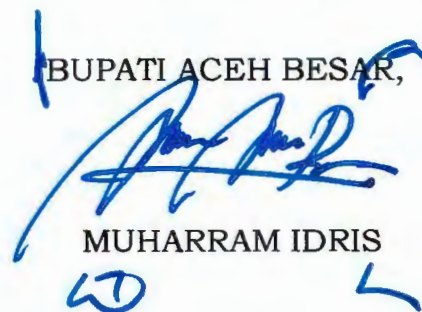 BUPATI ACEH BESAR,
MUHARRAM IDRIS